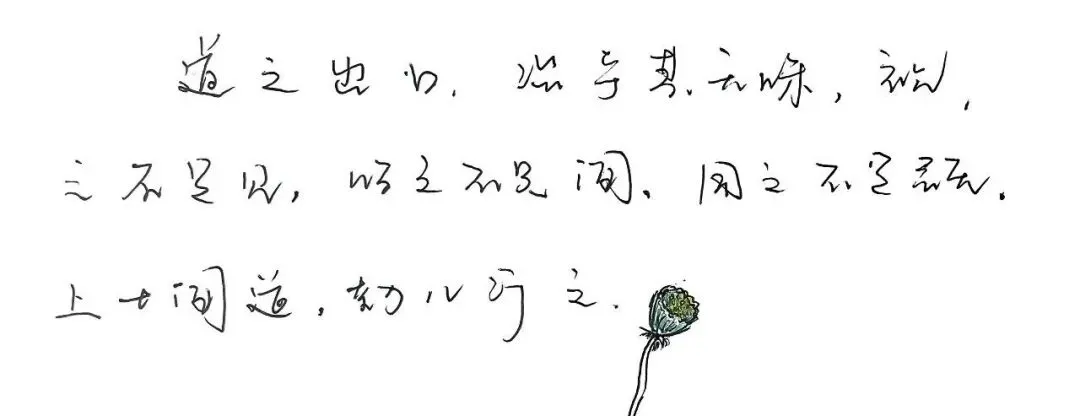 道之出口，淡乎其无味，视
之不足见，听之不足闻，用之不足既。
上士闻道，勤而行之。